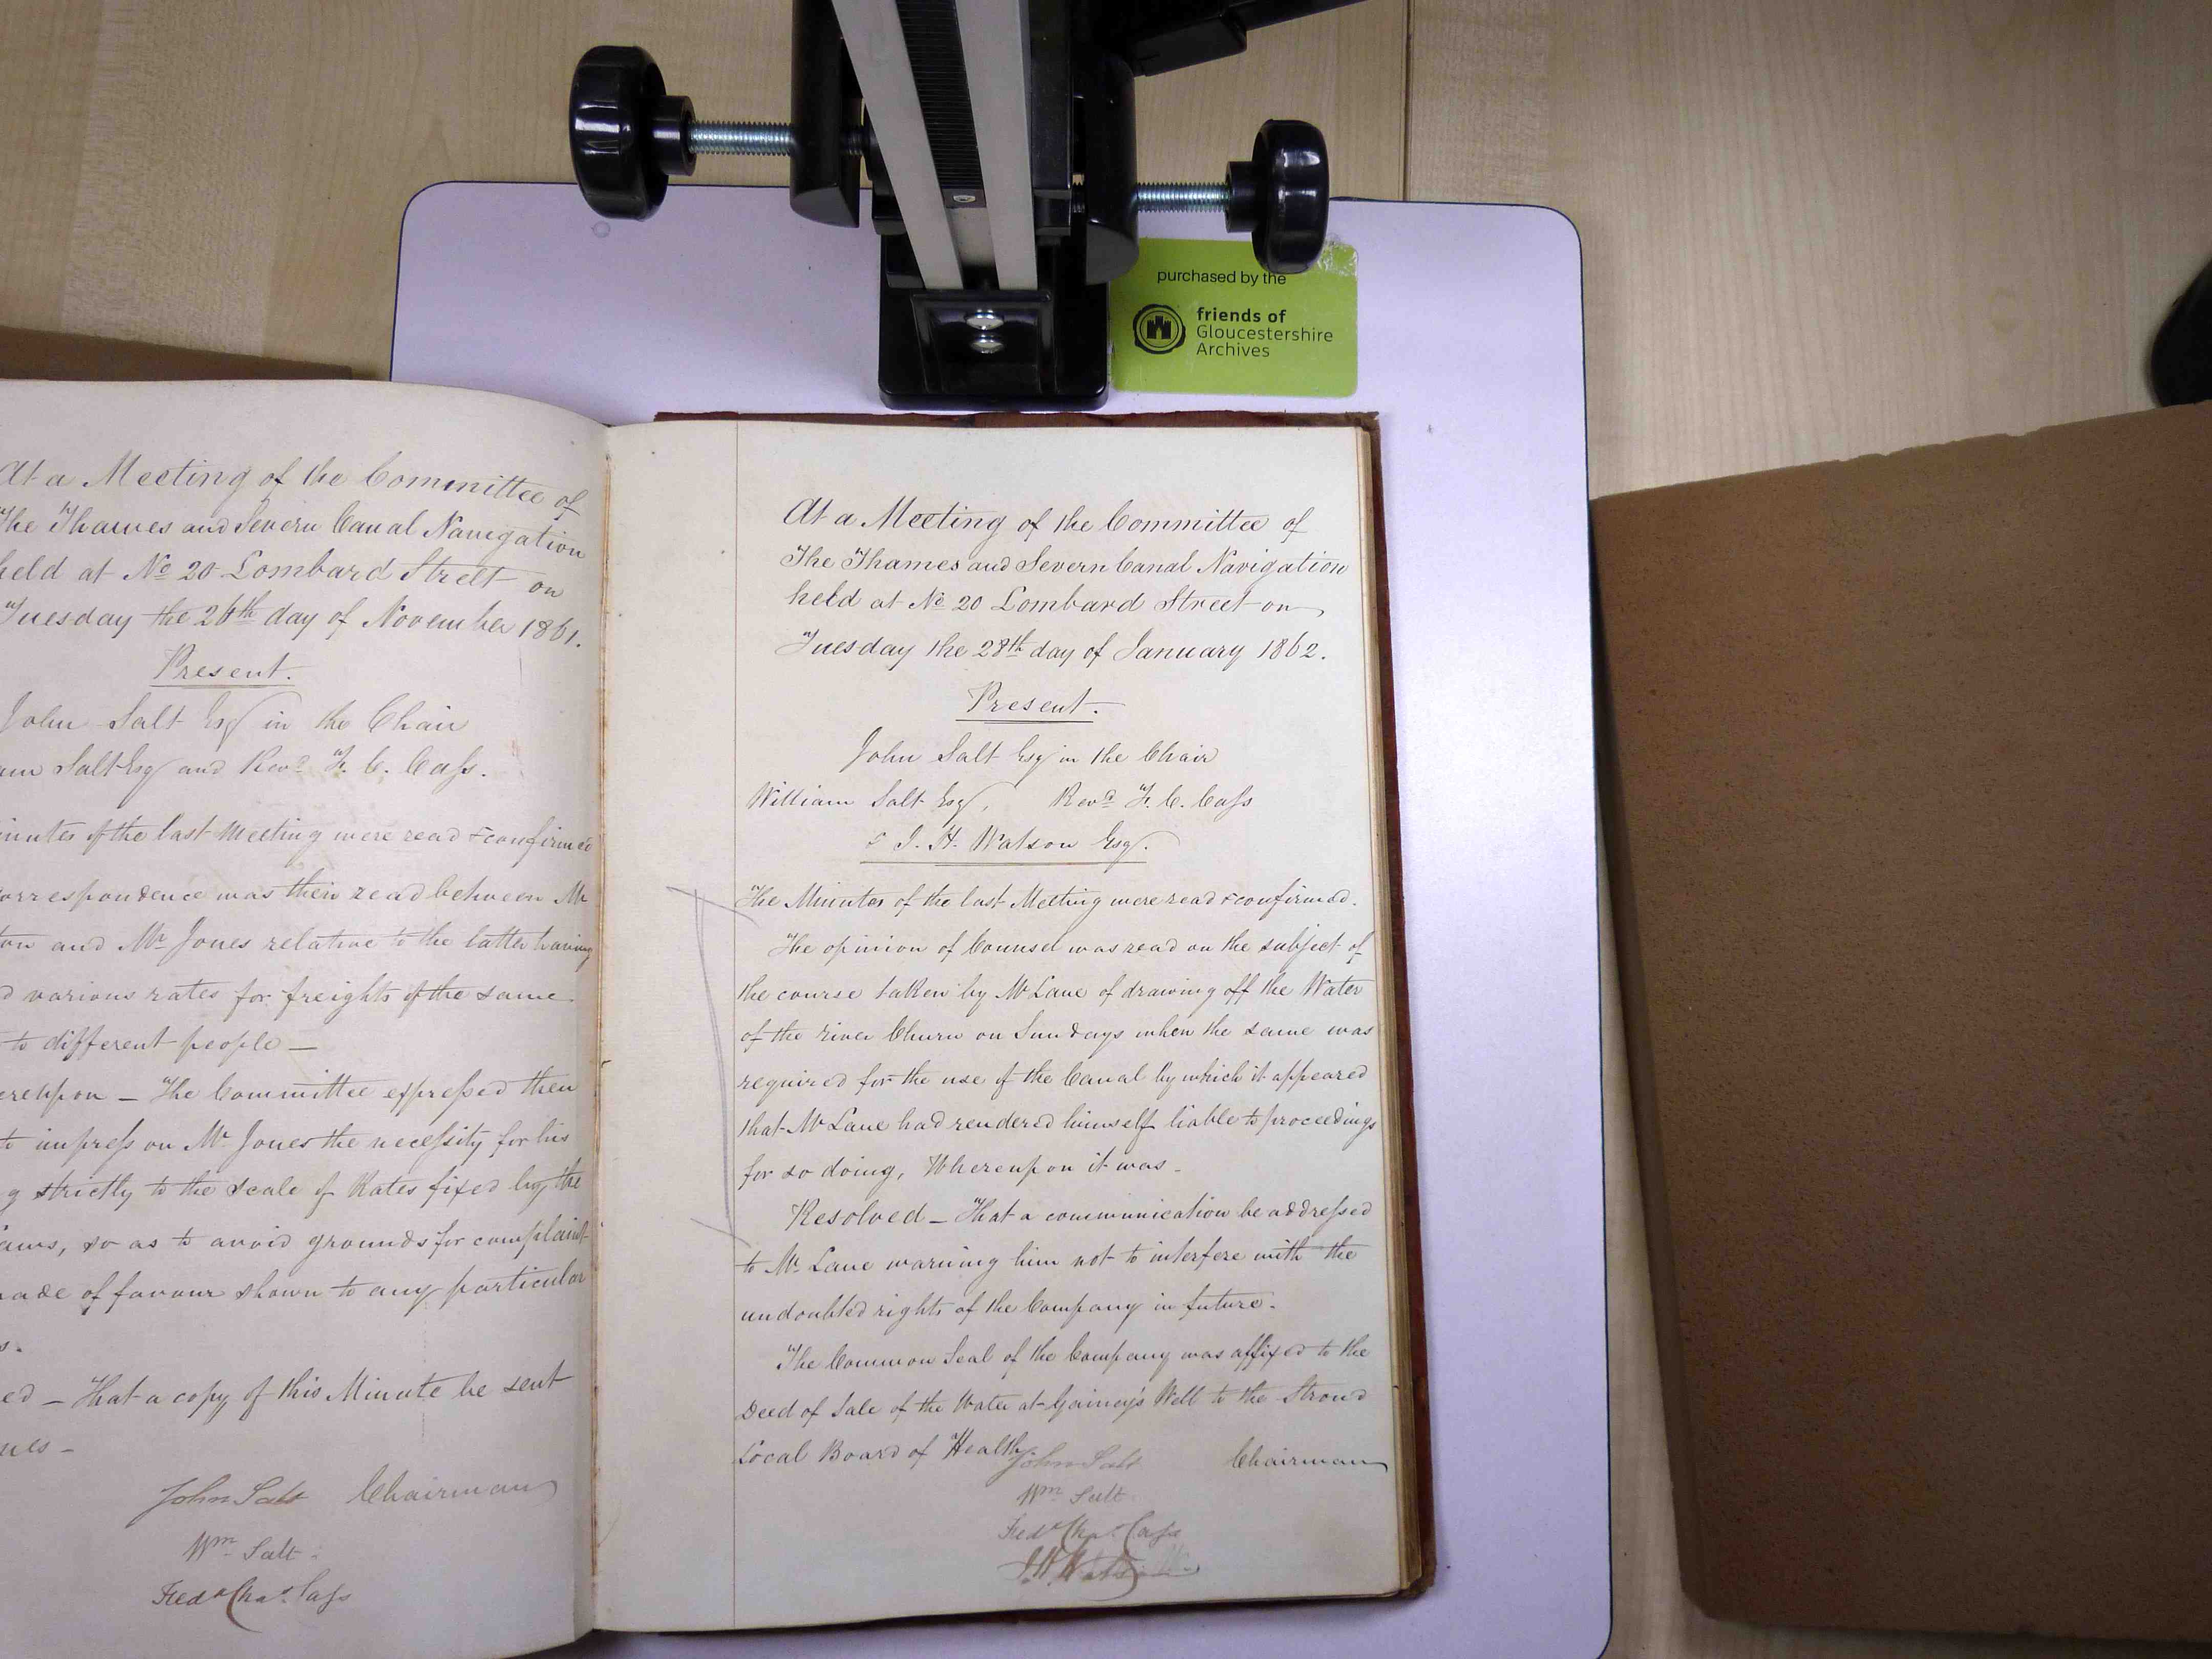 purchased by the
friends of
Gloucestershire
Archives
At a Meeting of the Committee of
The Thames and Severn Canal Navigation
held at No 20 Lombard Street on
Tuesday the 26th day of November 1861.
Present.
John Salt Esq in the Chair
Salt Esq and Revd F. C. Cass.
of the last Meeting were read & confirmed
correspondence was then read between Mr
and Mr Jones relative to the latter having
various rates for freights of the same
to different people —
— The Committee expressed their
to impress on Mr Jones the necessity for his
strictly to the Scale of Rates fixed by the
so as to avoid grounds for complaint
of favour shown to any particular
— That a copy of this Minute be sent
John Salt Chairman
Wm Salt
Fredk Chas. Cass
At a Meeting of the Committee of
The Thames and Severn Canal Navigation
held at No 20 Lombard Street on
Tuesday the 28th day of January 1862.
Present.
John Salt Esq in the Chair
William Salt Esq, Revd F. C. Cass
& J. H. Watson Esq.
The Minutes of the last Meeting were read & confirmed.
The opinion of Counsel was read on the subject of
the course taken by Mr Lane of drawing off the Water
of the river Churn on Sundays when the same was
required for the use of the Canal by which it appeared
that Mr Lane had rendered himself liable to proceedings
for so doing, Whereupon it was –
Resolved – That a communication be addressed
to Mr Lane warning him not to interfere with the
undoubted rights of the Company in future.
The Common Seal of the Company was affixed to the
Deed of Sale of the Water at Gainey's Well to the Stroud
Local Board of Health.
John Salt Chairman
Wm Salt
Fredk Chas. Cass
J H Watson